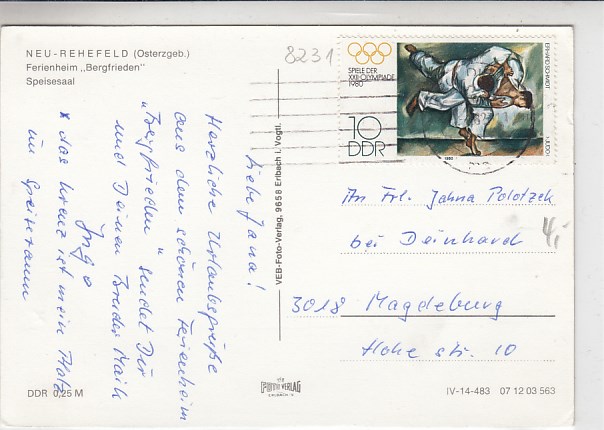 NEU-REHEFELD (Osterzgeb.)
Ferienheim „Bergfrieden"
Speisesaal
8231
SPIELE DER
XXII. OLYMPIADE
1980
10
DDR
ERHARD SCHMIDT
JUDOKA
1980
Liebe Jana!
Herzliche Urlaubsgrüße
aus dem schönen Ferienheim
„Bergfrieden" sendet Dir
und Deinen Bruder Maik
Ingo
x das Kreuz ist mein Platz
im Speiseraum
VEB-Foto-Verlag, 9658 Erlbach i. Vogtl.
An Frl. Jahna Polotzek
bei Deinhard
3018 Magdeburg
Hohe Str. 10
4,-
FOTO VERLAG
ERLBACH
DDR 0,25 M
IV-14-483 07 12 03 563